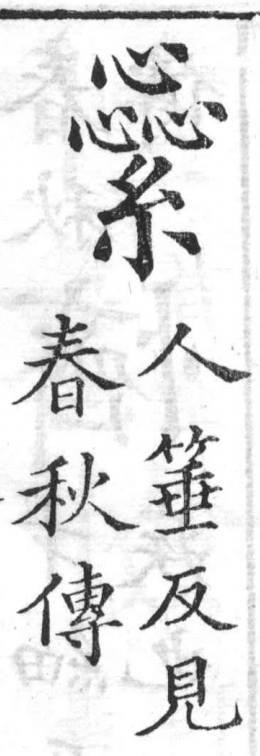 繠
人箠反見
春秋傳